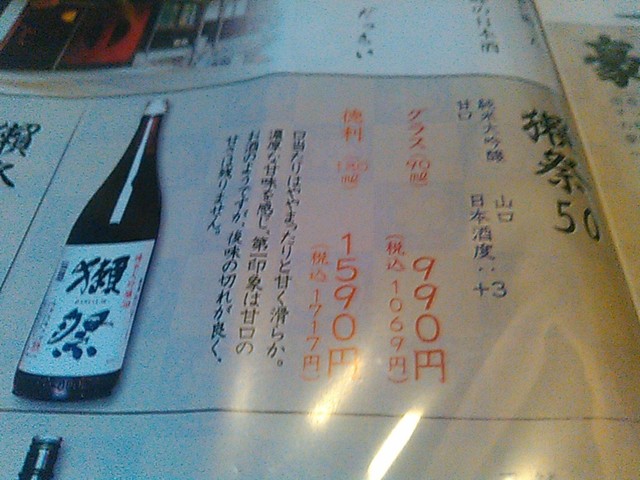 獺祭50
純米大吟醸 山口
甘口 日本酒度：+3
グラス 90㎖ 990円
(税込1069円)
徳利 180㎖ 1590円
(税込1717円)
口当たりはややまったりと甘く滑らか。
濃厚な甘味を感じ、第一印象は甘口の
お酒のようですが、後味の切れが良く、
甘さは残りません。
獺祭